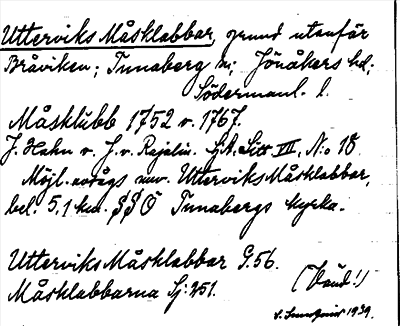 Utterviks Måsklabbar, grund utanför
Bråviken; Tunaberg sn; Jönåkers hd;
Södermanl. l.
Måsklubb 1752 v. 1767.
J. Hahn v. J. v. Rajalin. Sjk. Litt VII, N:o 18
Möjl. avsågs nuv. Utterviks Måsklabbar,
bel. 5,1 km. SSÖ Tunabergs kyrka.
Utterviks Måsklabbar G. 56.
Måsklabbarna Sj: 251.
(Vänd!)
1939.